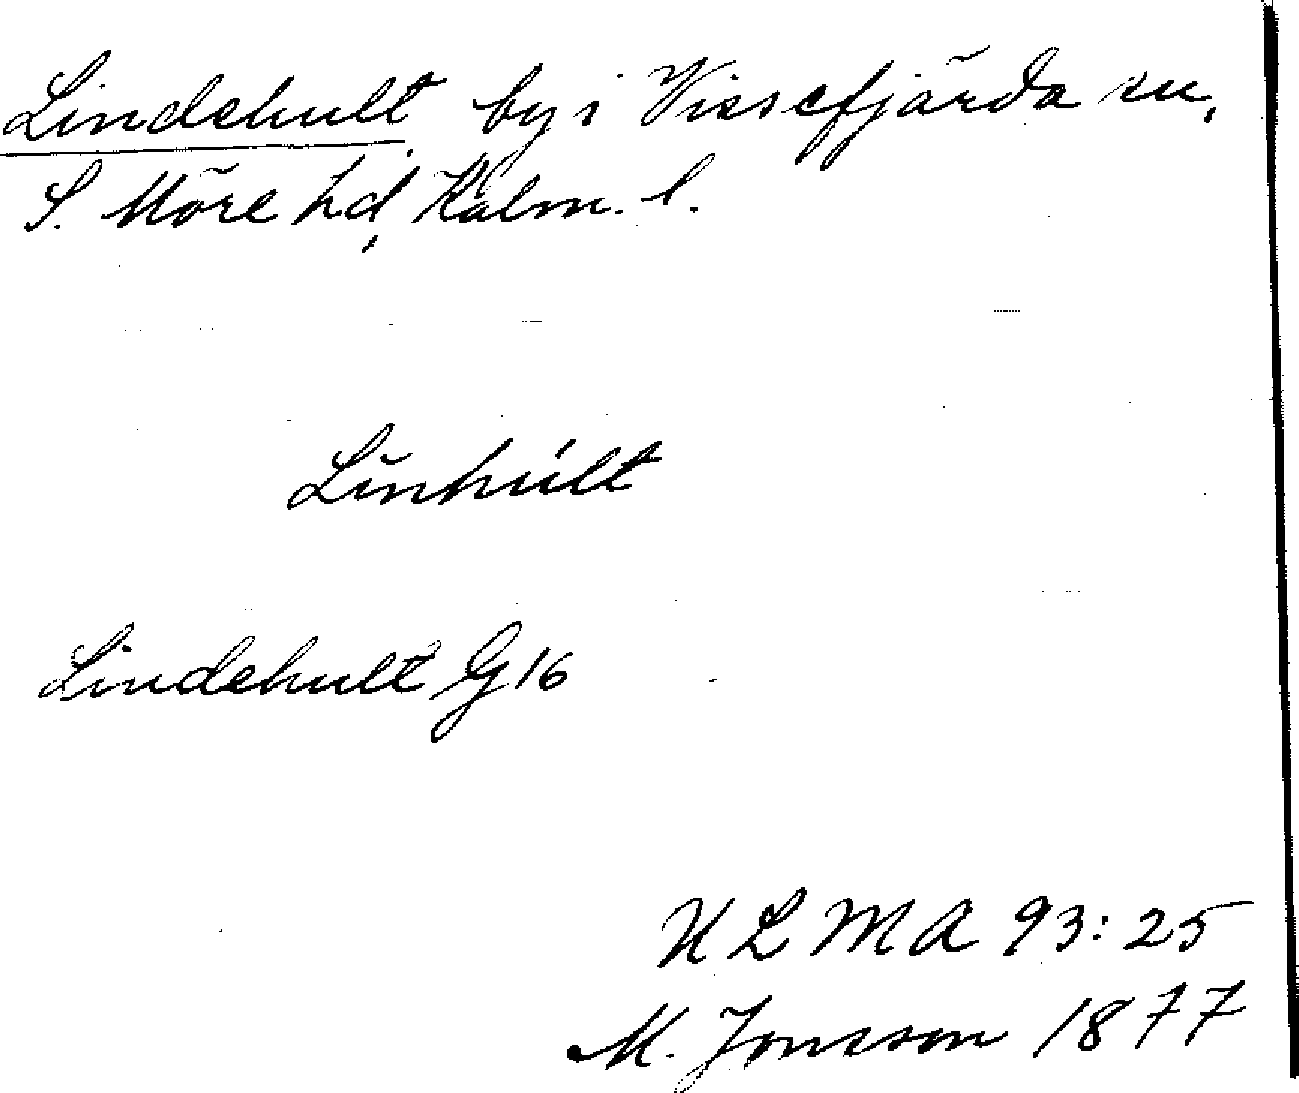 Lindehult by i Vissefjärda sn,
S. Möre hd, Kalm. l.
Linhúlt
Lindehult G16
ULMA 93:25
M. Jonsson 1877